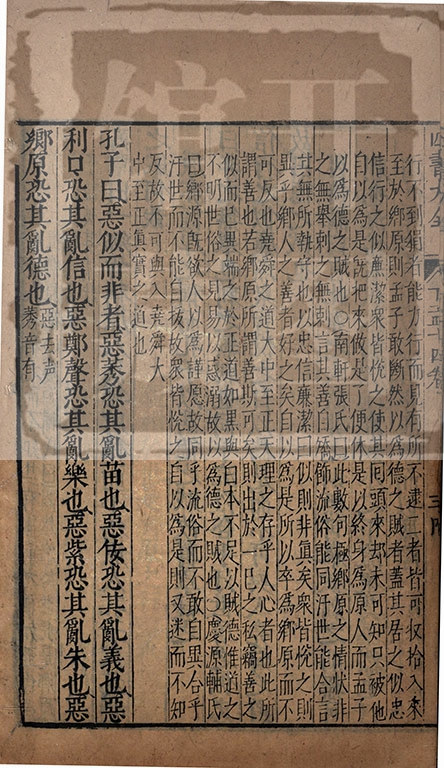 行不到狷者能力行而見有所不逮二者皆可收拾入來
至於鄉原則孟子敢斷然以爲德之賊者蓋其居之似忠
信行之似廉潔衆皆悅之使其回頭來却未可知只被他
自以爲是旣把來做是了便休是以終身爲原人而孟子
以爲德之賊也○南軒張氏曰此數句極鄉原之情狀非
之無舉刺之無刺言其善自矯飾流俗能同汙世能合言
其無所執守也以忠信廉潔曰似則非眞矣衆皆悅之則
異乎鄉人之善者好之矣自以爲是所以卒爲鄉原而不
可反也堯舜之道大中至正天理之存乎人心者也此所
謂善也若鄉原所謂善斯可矣則出於一已之私竊善之
似而已異端之於正道如黑與白本不足以賊德惟道之
不明世俗之見易以惑溺故以爲德之賊也○慶源輔氏
曰鄉源旣欲人以爲謹愿故同乎流俗而不敢自異合乎
汙世而不能自拔故衆皆悅之自以爲是則又迷而不知
反故不可與入堯舜大
中至正眞實之道也
孔子曰惡似而非者惡莠恐其亂苗也惡佞恐其亂義也惡
利口恐其亂信也惡鄭聲恐其亂樂也惡紫恐其亂朱也惡
鄉原恐其亂德也惡去声
莠音有